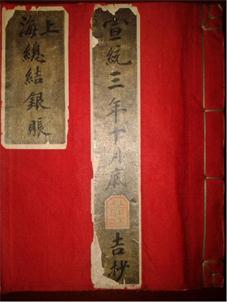 宣統三年十月底
吉抄
上
海總結銀賬